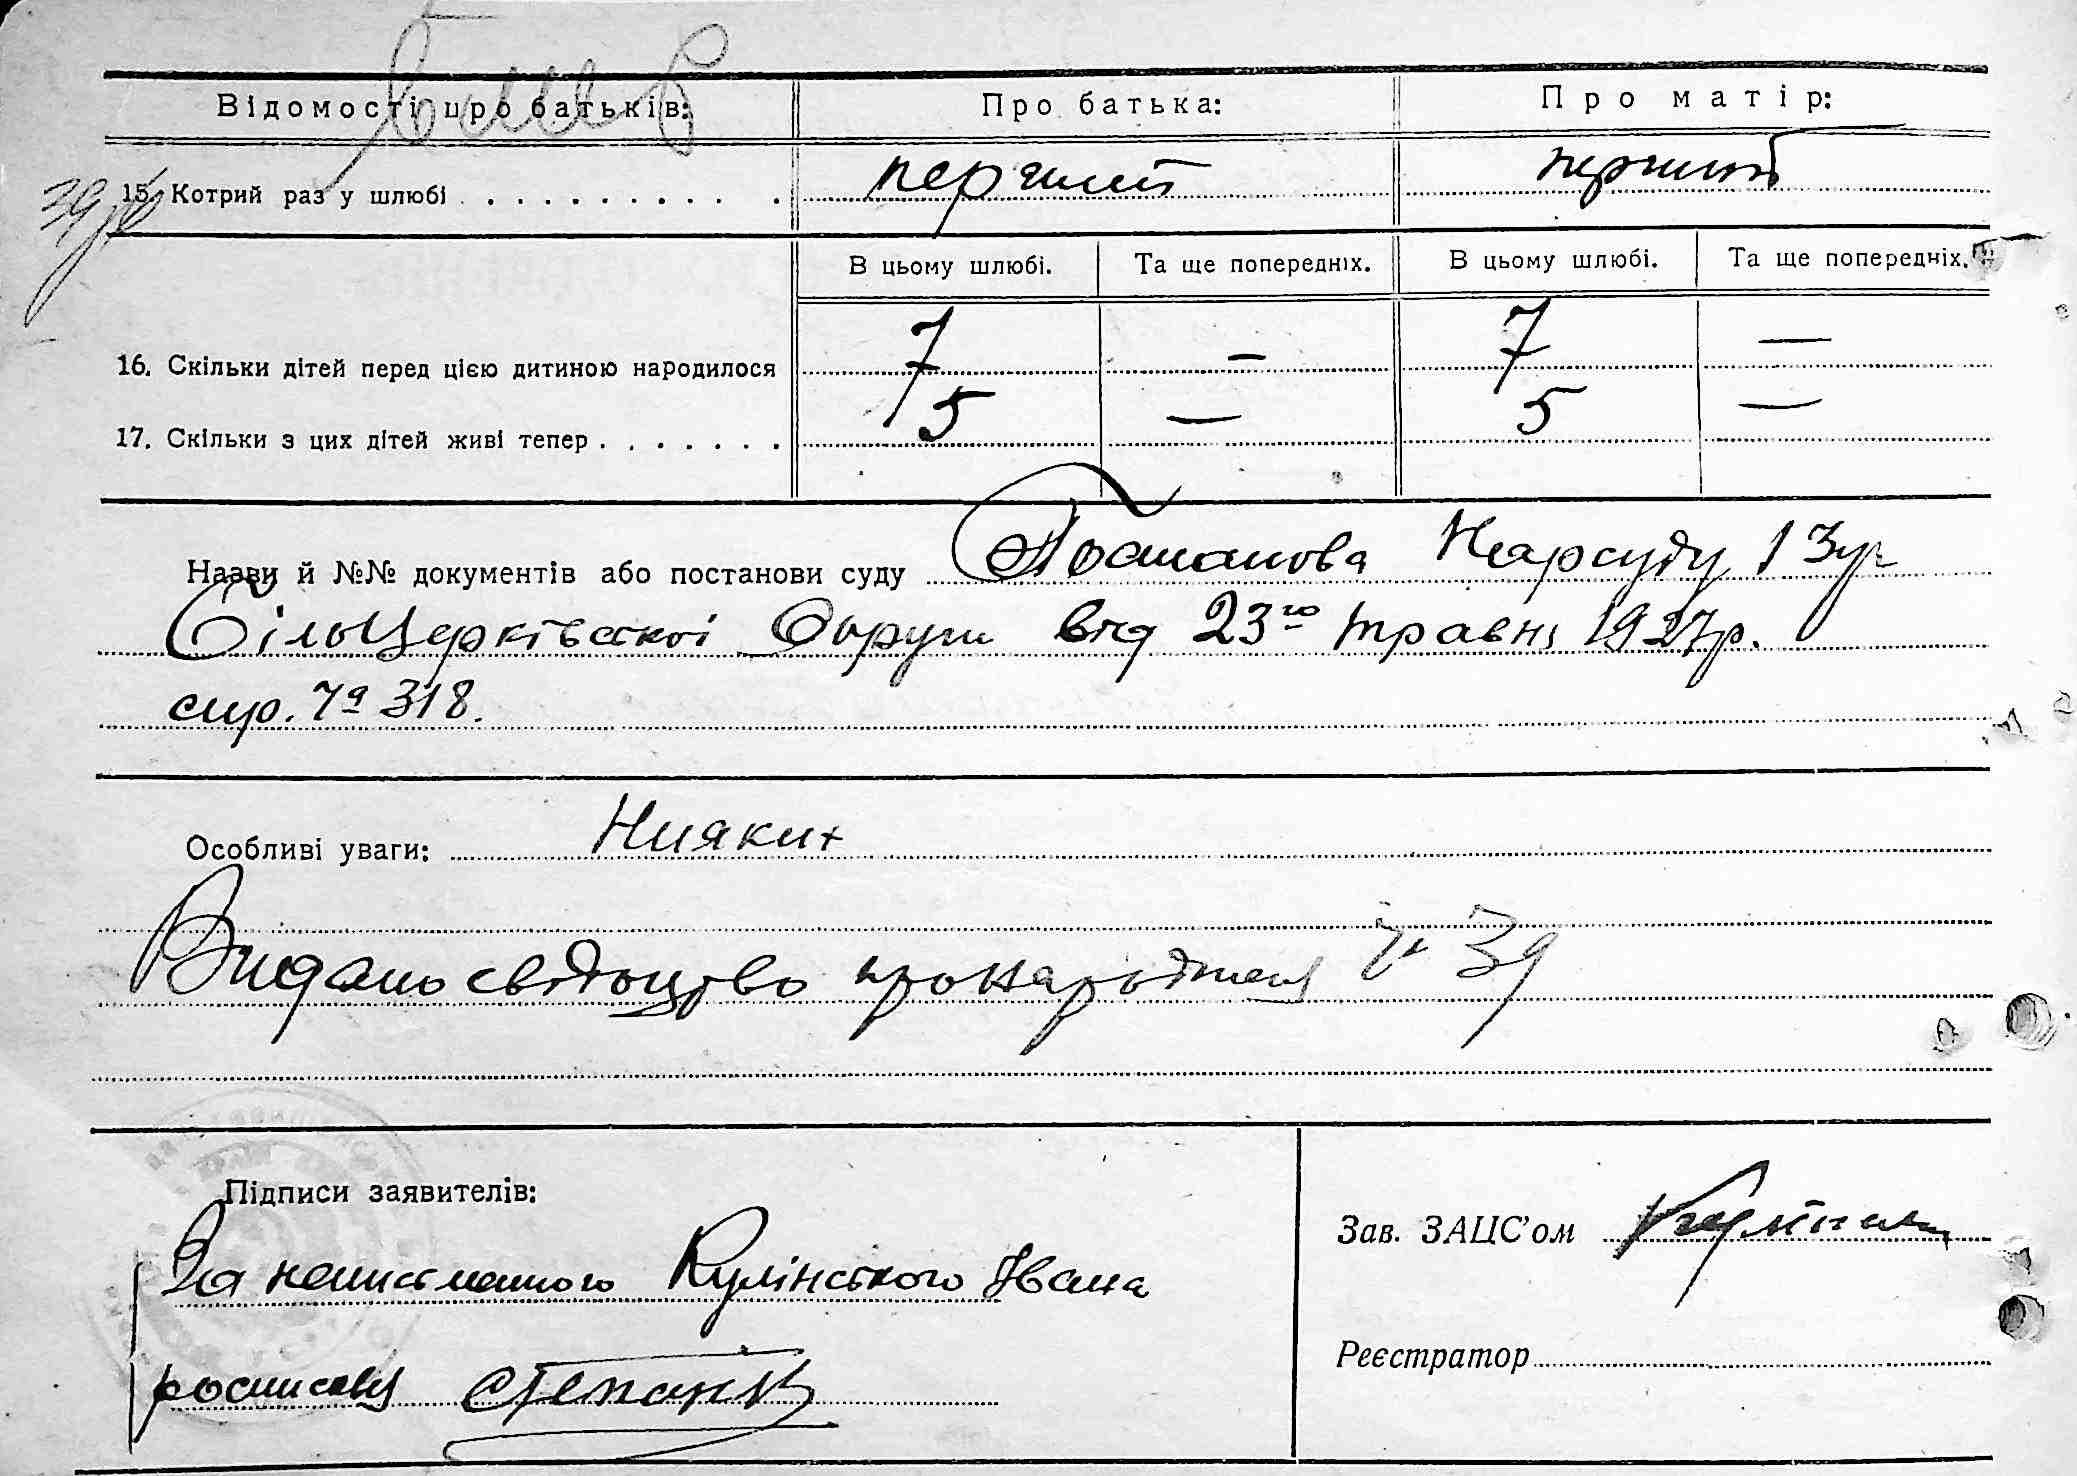 Відомості про батьків:
Про батька:
Про матір:
15. Котрий раз у шлюбі
перший
перший
В цьому шлюбі.
Та ще попередніх.
В цьому шлюбі.
Та ще попередніх.
16. Скільки дітей перед цією дитиною народилося
7
—
7
—
17. Скільки з цих дітей живі тепер
5
—
5
—
Назви й №№ документів або постанови суду Постанова Нарсуду 1
БілоЦерківської Округи від 23го травня 1927р.
спр. № 318.
Особливі уваги: Нияких
Видано свідоцтво про народження № 39
Підписи заявителів:
За неписьменного Кулінського Івана
росписався
Зав. ЗАЦС'ом
Реєстратор